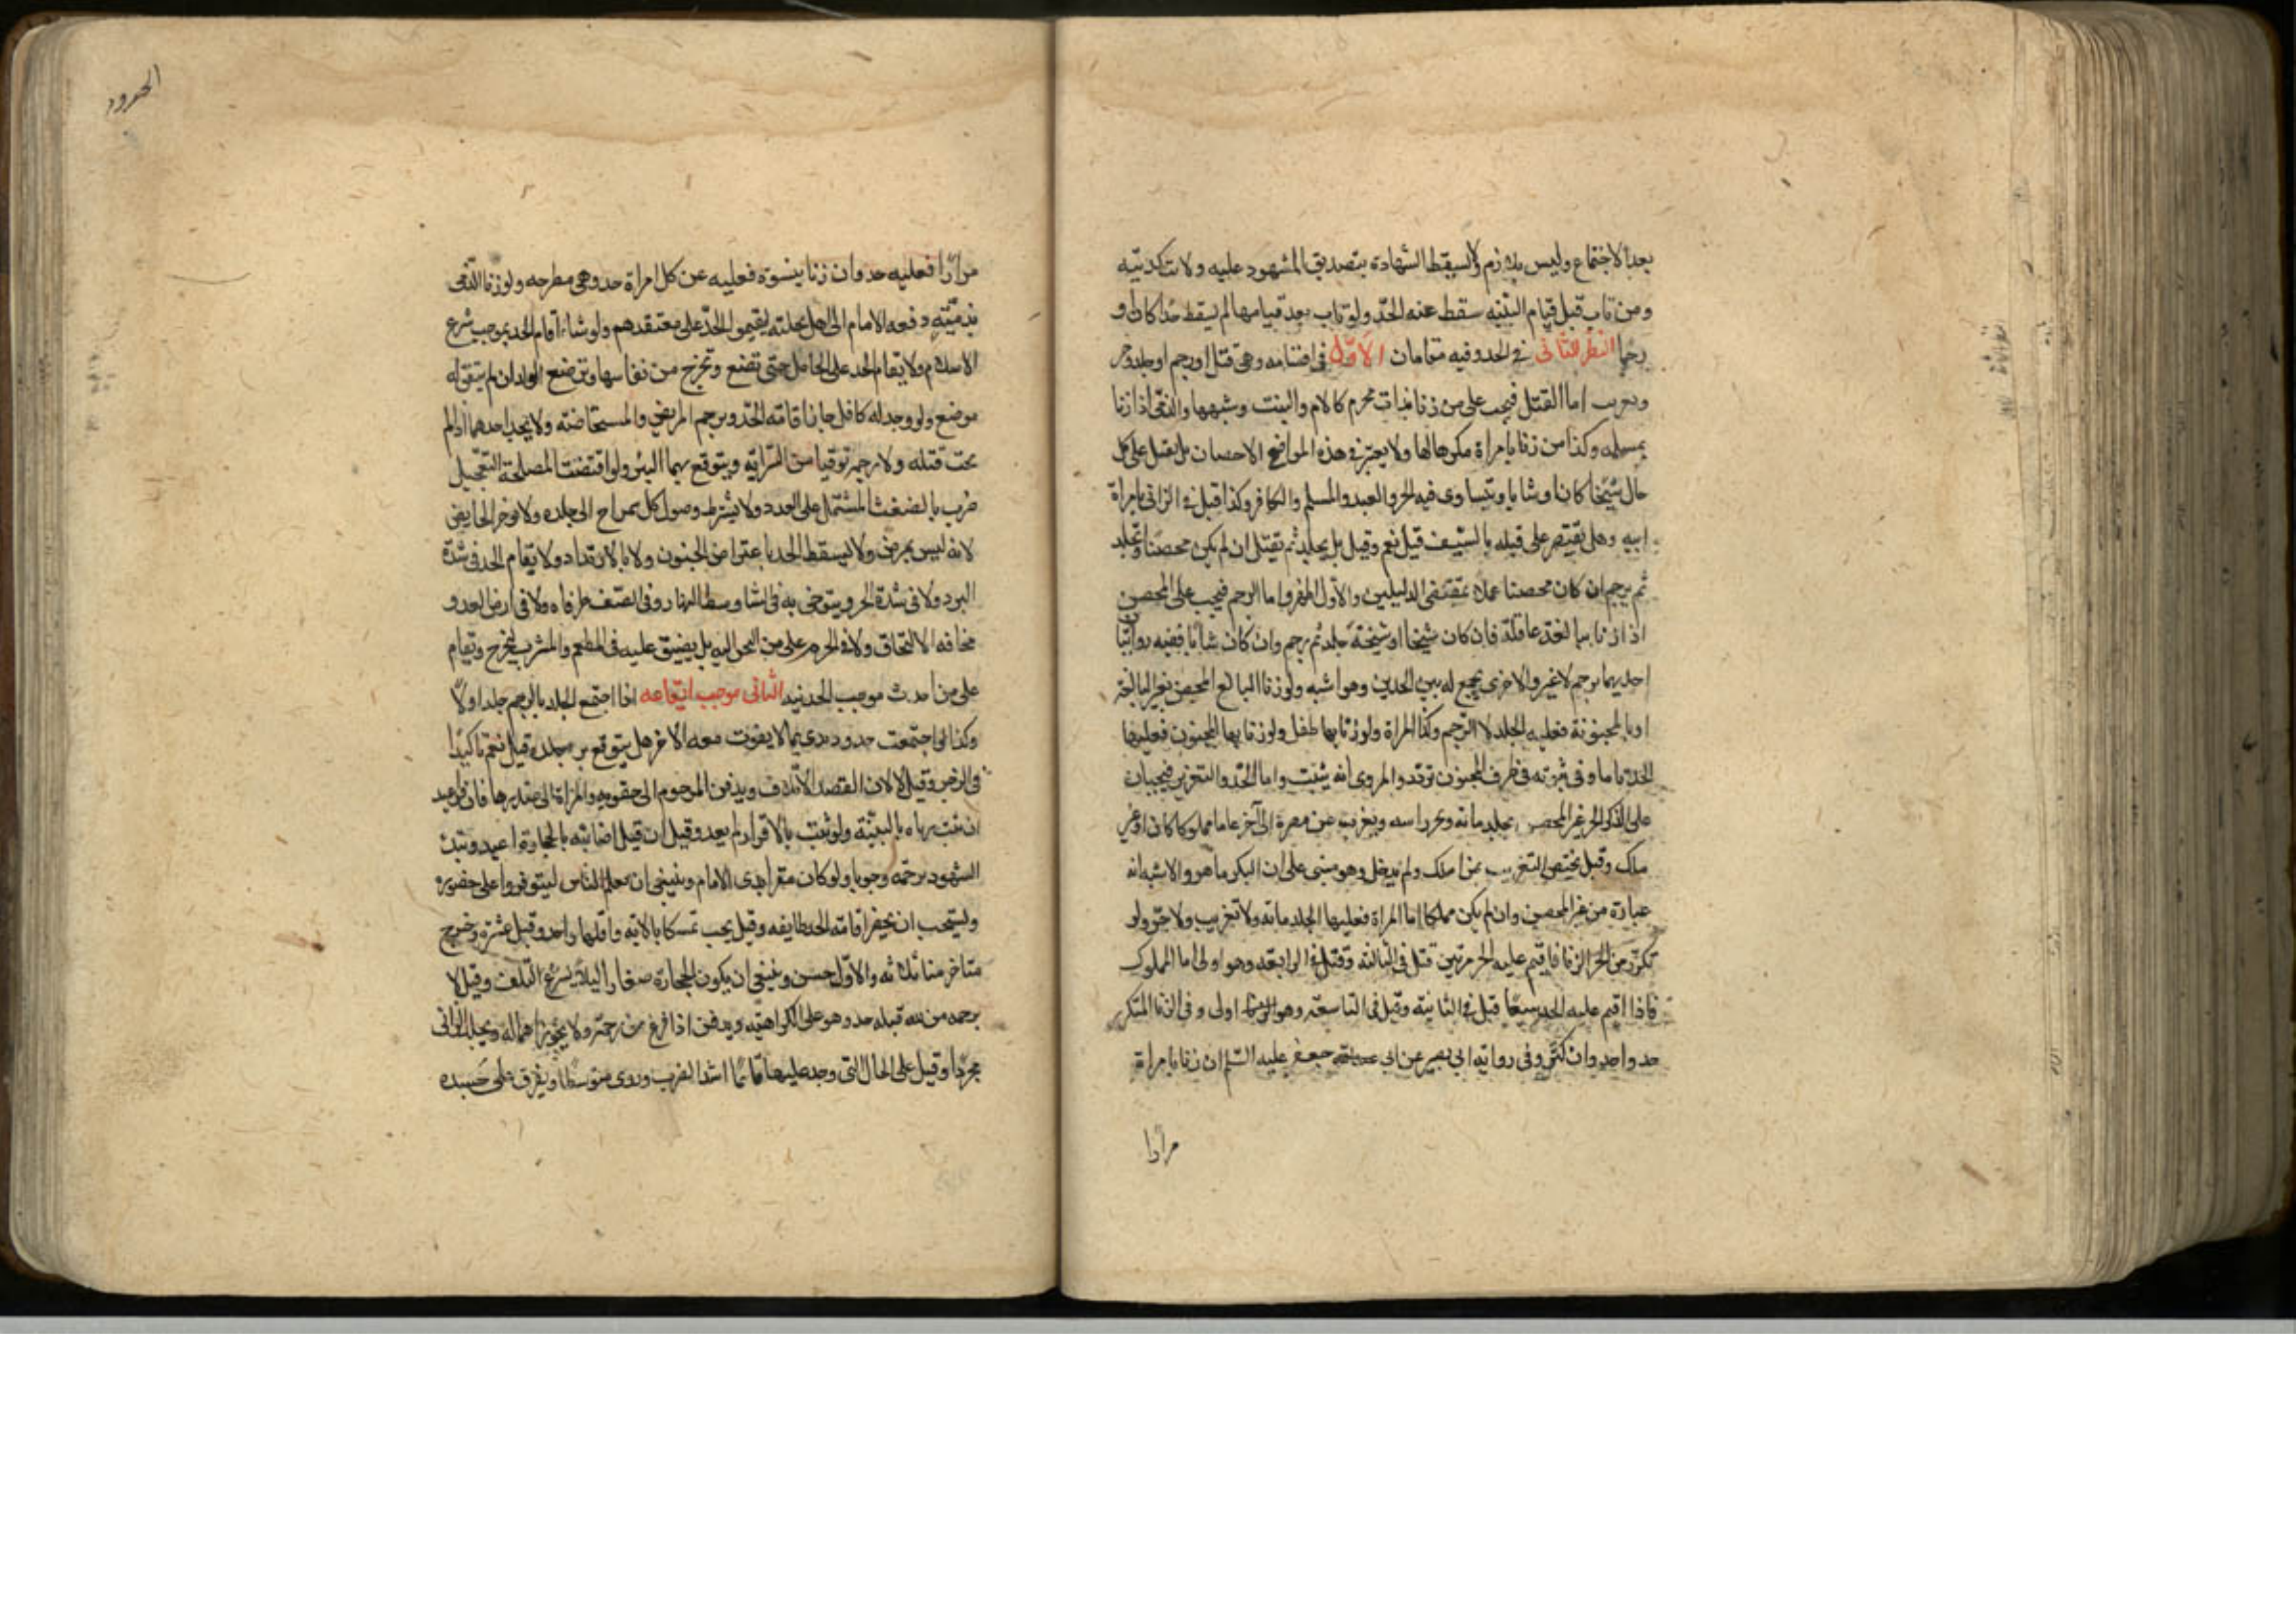 بعد الاجتماع وليس بلازم ولا يسقط الشهادة بتصديق المشهود عليه ولا بتكذيبه
ومن تاب قبل قيام البينه سقط عنه الحد ولو تاب بعد قيامها لم يسقط حدا كان او
رجما النظر الثانى فى الحد وفيه مقامان الاول فى اقسامه وهى قتل او رجم او جلد وجز
وتغريب اما القتل فيجب على من زنا بذات محرم كالام والبنت وشبهها والذمى اذا زنا
بمسلمه وكذا من زنا بامراة مكرها لها ولا يعتبر فى هذه المواضع الاحصان بل يقتل على كل
حال شيخا كان او شابا ويتساوى فيه الحر والعبد والمسلم والكافر وكذا قيل فى الزانى بامراة
ابيه وهل يقتصر على قتله بالسيف قيل نعم وقيل بل يجلد ثم يقتل ان لم يكن محصنا ويجلد
ثم يرجم ان كان محصنا عملا بمقتضى الدليلين والاول اظهر واما الرجم فيجب على المحصن
اذا زنا ببالغة عاقلة فان كان شيخا او شيخة جلد ثم رجم وان كان شابا ففيه روايتان
احديهما يرجم لا غير والاخرى يجمع له بين الحدين وهو اشبه ولو زنا البالغ المحصن بغير البالغة
او بالمجنونة فعليه الجلد لا الرجم وكذا المراة ولو زنا بها طفل ولو زنا بها المجنون فعليها
الحد تاما وفى ثبوته فى طرف المجنون تردد والمروى انه يثبت واما الجلد والتغريب فيجبان
على الذكر الحر غير المحصن يجلد مائه ويجز راسه ويغرب عن مصره الى آخر عاما مملوكا كان او غير
ملك وقيل يختص التغريب بمن املك ولم يدخل وهو مبنى على ان البكر ما هو والاشبه انه
عبارة من غير المحصن وان لم يكن مملكا اما المراة فعليها الجلد مائه ولا تغريب ولا جز ولو
تكرر من الحر الزنا فاقيم عليه الحد مرتين قتل فى الثالثه وقيل فى الرابعه وهو اولى اما المملوك
فاذا اقيم عليه الحد سبعا قتل فى الثامنة وقيل فى التاسعة وهو اولى وفى الزنا المتكرر
حد واحد وان كثر وفى رواية ابى بصير عن ابى جعفر عليه السلم ان زنا بامراة
مرارا
الحدود
مرارا فعليه حد وان زنا بنسوة فعليه عن كل امراة حد وهى مطرحه ولو زنا الذمى
بذمية دفعه الامام الى اهل نحلته ليقيموا الحد على معتقدهم ولو شاء اقام الحد بموجب شرع
الاسلام ولا يقام الحد على الحامل حتى تضع وتخرج من نفاسها وترضع الولد ان لم يتفق له
مرضع ولو وجد له كافل جاز اقامة الحد ويرجم المريض والمستحاضة ولا يجلد احدهما اذا لم
يجب قتله ولا رجمه توقيا من السراية ويتوقع بهما البرء ولو اقتضت المصلحة التعجيل
ضرب بالضغث المشتمل على العدد ولا يشترط وصول كل شمراخ الى جلده ولا تؤخر الحايض
لانه ليس بمرض ولا يسقط الحد باعتراض الجنون ولا بالارتداد ولا يقام الحد فى شدة
البرد ولا فى شدة الحر ويتوخى به فى الشتا وسط النهار وفى الصيف طرفاه ولا فى ارض العدو
مخافة الالتحاق ولا فى الحرم على من التجى اليه بل يضيق عليه فى المطعم والمشرب ليخرج ويقام
على من احدث موجب الحد فيه الثانى موجب ايقاعه اذا اجتمع الجلد بالرجم جلد اولا
وكذا لو اجتمعت حدود بدى بما لا يفوت معه الاخر وهل يتوقع برء جلده قيل نعم تاكيدا
فى الزجر وقيل لا لان القصد الاتلاف ويدفن المرجوم الى حقويه والمراة الى صدرها فان فر اعيد
ان ثبت زناه بالبينة ولو ثبت بالاقرار لم يعد وقيل ان قيل اصابته بالحجارة اعيد ويبدئ
الشهود برجمه وجوبا ولو كان مقرا بدى الامام وينبغى ان يعلم الناس ليتوفروا على حضوره
ويستحب ان يحضر اقامة الحد طايفه وقيل يجب تمسكا بالاية واقلها واحد وقيل عشرة وخرج
متاخر منا ثلاثه والاول حسن وينبغى ان يكون الحجارة صغارا ليلا يسرع التلف وقيل لا
يرجمه من لله قبله حد وهو على الكراهية ويدفن اذا فرغ من رجمه ولا يجوز اهماله ويجلد الزانى
مجردا وقيل على الحال التى وجد عليها قائما اشد الضرب وروى متوسطا ويفرق على جسده